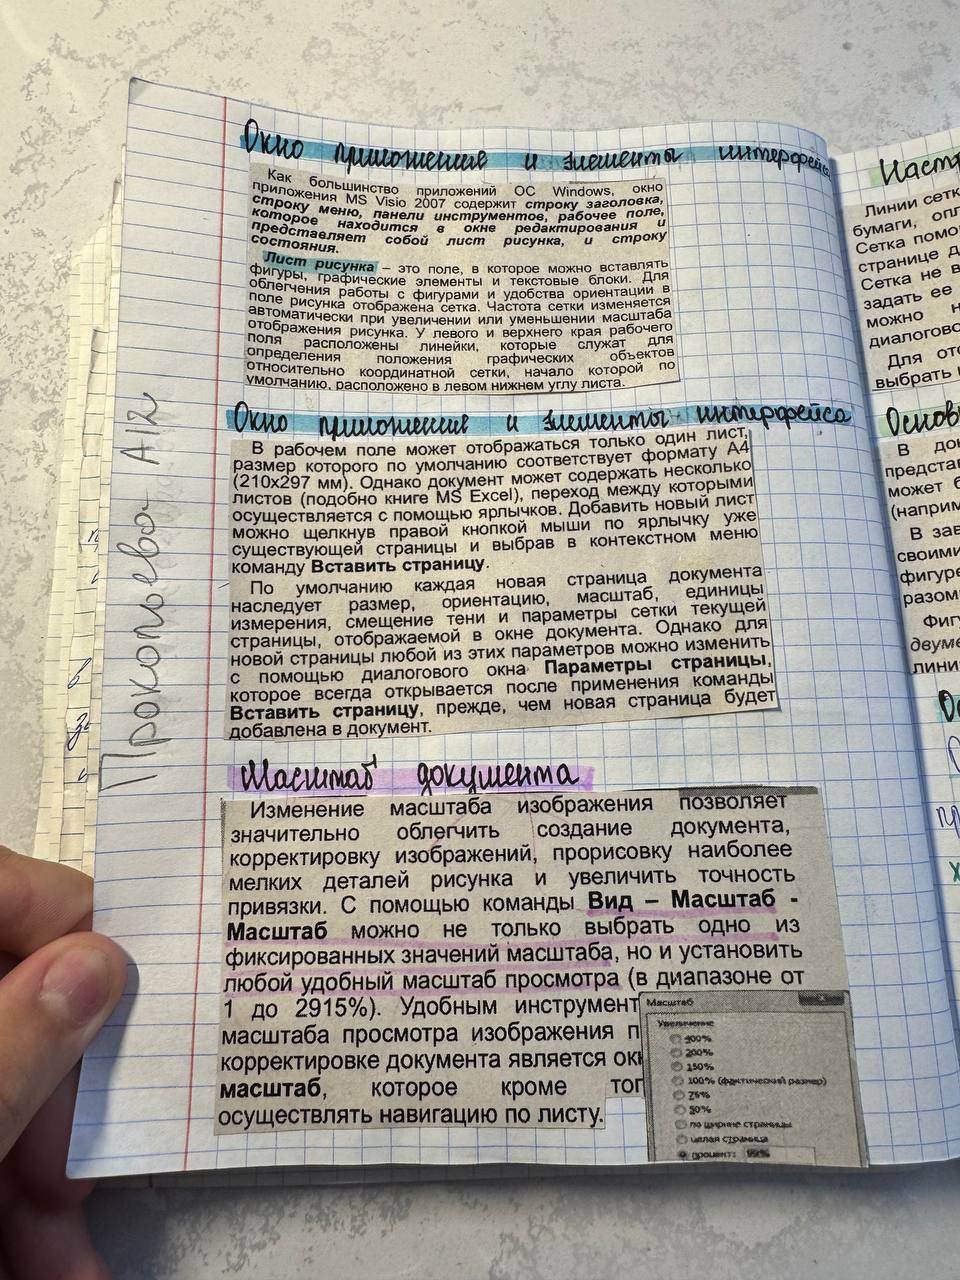 Окно приложения и элементы интерфейса
Как большинство приложений ОС Windows, окно
приложения MS Visio 2007 содержит строку заголовка,
строку меню, панели инструментов, рабочее поле,
которое находится в окне редактирования и
представляет собой лист рисунка, и строку
состояния.
Лист рисунка – это поле, в которое можно вставлять
фигуры, графические элементы и текстовые блоки. Для
облегчения работы с фигурами и удобства ориентации в
поле рисунка отображена сетка. Частота сетки изменяется
автоматически при увеличении или уменьшении масштаба
отображения рисунка. У левого и верхнего края рабочего
поля расположены линейки, которые служат для
определения положения графических объектов
относительно координатной сетки, начало которой по
умолчанию, расположено в левом нижнем углу листа.
Окно приложения и элементы интерфейса
В рабочем поле может отображаться только один лист,
размер которого по умолчанию соответствует формату А4
(210x297 мм). Однако документ может содержать несколько
листов (подобно книге MS Excel), переход между которыми
осуществляется с помощью ярлычков. Добавить новый лист
можно щелкнув правой кнопкой мыши по ярлычку уже
существующей страницы и выбрав в контекстном меню
команду Вставить страницу.
По умолчанию каждая новая страница документа
наследует размер, ориентацию, масштаб, единицы
измерения, смещение тени и параметры сетки текущей
страницы, отображаемой в окне документа. Однако для
новой страницы любой из этих параметров можно изменить
с помощью диалогового окна Параметры страницы,
которое всегда открывается после применения команды
Вставить страницу, прежде, чем новая страница будет
добавлена в документ.
Масштаб документа
Изменение масштаба изображения позволяет
значительно облегчить создание документа,
корректировку изображений, прорисовку наиболее
мелких деталей рисунка и увеличить точность
привязки. С помощью команды Вид – Масштаб -
Масштаб можно не только выбрать одно из
фиксированных значений масштаба, но и установить
любой удобный масштаб просмотра (в диапазоне от
1 до 2915%). Удобным инструмент
масштаба просмотра изображения п
корректировке документа является ок
масштаб, которое кроме тог
осуществлять навигацию по листу.
Масштаб
Увеличение
400%
200%
150%
100% (фактический размер)
75%
50%
по ширине страницы
целая страница
процент: 99%
Прокопьева А12
Линии сетк
бумаги,
Сетка помо
странице д
Сетка не в
задать ее
можно н
диалогово
Для ото
выбрать
Основ
В док
представ
может б
(наприм
В зав
своими
фигуре
разом
Фигу
двуме
лини